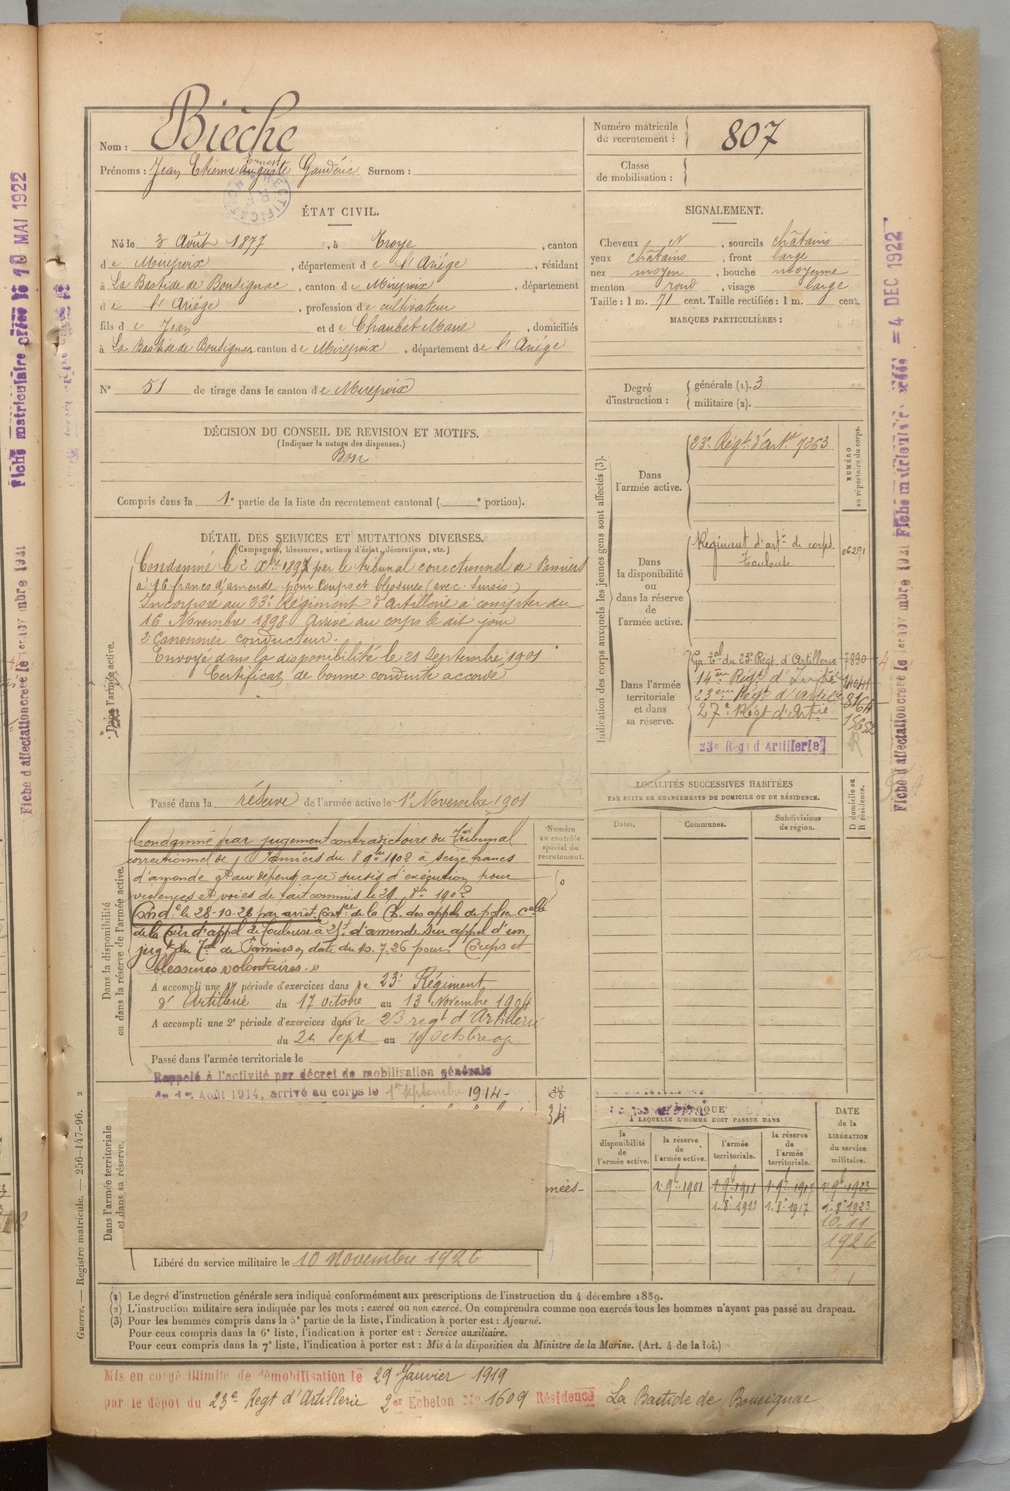 Nom : Bièche
Prénoms : Jean Etienne Auguste Gaudéric Surnom :
Ernest
RECTIFICATION
Numéro matricule du recrutement : 807
Classe de mobilisation :
ÉTAT CIVIL.
Né le 3 Août 1877, à Troye, canton
de Mirepoix, département de l'Ariége, résidant
à La Bastide de Bousignac, canton de Mirepoix, département
de l'Ariége, profession de cultivateur
fils de Jean et de Chaubet Marie, domiciliés
à La Bastide de Bousignac canton de Mirepoix, département de l'Ariége
N° 51 de tirage dans le canton de Mirepoix
SIGNALEMENT.
Cheveux N, sourcils châtains
yeux châtains, front large
nez moyen, bouche moyenne
menton rond, visage large
Taille : 1 m. 71 cent. Taille rectifiée : 1 m. cent.
MARQUES PARTICULIÈRES :
Degré d'instruction : générale (1). 3
militaire (2).
DÉCISION DU CONSEIL DE REVISION ET MOTIFS.
(Indiquer la nature des dispenses.)
Bon
Compris dans la 1e partie de la liste du recrutement cantonal ( e portion).
DÉTAIL DES SERVICES ET MUTATIONS DIVERSES.
(Campagnes, blessures, actions d'éclat, décorations, etc.)
Dans l'armée active.
Condamné le 2 Xbre 1897 par le tribunal correctionnel de Pamiers
à 16 francs d'amende pour Coups et blessures (avec sursis)
Incorporé au 23e Régiment d'artillerie à compter du
16 Novembre 1898. Arrivé au corps le dit jour
2e canonnier conducteur.
Envoyé dans la disponibilité le 21 Septembre 1901
Certificat de bonne conduite accordé
Passé dans la réserve de l'armée active le 1er Novembre 1901
Indication des corps auxquels les jeunes gens sont affectés (3).
NUMÉRO au répertoire du corps.
Dans l'armée active.
23e Régt d'artie 7263
Dans la disponibilité ou dans la réserve de l'armée active.
Régiment d'artie de corps
Toulouse
Dans l'armée territoriale et dans sa réserve.
Gr. Tal du 23e Régt d'Artillerie 7890
14ème Régt d'Artie
23ème Régt d'artie 3164
27e Régt d'Artie
23e Régt d'Artillerie
LOCALITÉS SUCCESSIVES HABITÉES
PAR SUITE DE CHANGEMENTS DE DOMICILE OU DE RÉSIDENCE.
Dates. Communes. Subdivisions de région. D domicile ou R résidence.
Dans la disponibilité ou dans la réserve de l'armée active.
Numéro au contrôle spécial du recrutement.
Condamné par jugement contradictoire du Tribunal
correctionnel de Pamiers du 8 9bre 1902 à seize francs
d'amende et aux dépens avec sursis d'exécution pour
violences et voies de fait commis le 29 8bre 1902
Condé le 28-10-26 par arrêt Cont. de la Ch. des appels de police Celle
de la Cour d'appel de Toulouse à 25f d'amende sur appel d'un
jugt du Tal de Pamiers en date du 10.7.26 pour Coups et
blessures volontaires. »
A accompli une 1re période d'exercices dans le 23e Régiment
d'Artillerie du 17 octobre au 13 Novembre 1904
A accompli une 2e période d'exercices dans le 23 regt d'Artillerie
du 24 Sept au
Passé dans l'armée territoriale le
Dans l'armée territoriale et dans sa réserve.
Rappelé à l'activité par décret de mobilisation générale
du 1er Août 1914, arrivé au corps le 1er septembre 1914-
38
34
mées-
Libéré du service militaire le 10 novembre 1926
ÉPOQUE
À LAQUELLE L'HOMME DOIT PASSER DANS
la disponibilité de l'armée active. la réserve de l'armée active. l'armée territoriale. la réserve de l'armée territoriale.
DATE de la LIBÉRATION du service militaire.
1. 9bre 1901 1. 9bre 1911 1. 9bre 1917 1. 9bre 1923
1. 8e 1913 1. 8e 1917 1. 8e 1923
10.11
1926
(1) Le degré d'instruction générale sera indiqué conformément aux prescriptions de l'instruction du 4 décembre 1889.
(2) L'instruction militaire sera indiquée par les mots : exercé ou non exercé. On comprendra comme non exercés tous les hommes n'ayant pas passé au drapeau.
(3) Pour les hommes compris dans la 5e partie de la liste, l'indication à porter est : Ajourné.
Pour ceux compris dans la 6e liste, l'indication à porter est : Service auxiliaire.
Pour ceux compris dans la 7e liste, l'indication à porter est : Mis à la disposition du Ministre de la Marine. (Art. 4 de la loi.)
Mis en congé illimité de démobilisation le 29 Janvier 1919
par le dépôt du 23e Regt d'Artillerie 2er Echelon N° 1609 Résidence La Bastide de Bousignac
Guerre. — Registre matricule. — 256-147-96.
Fiche matriculaire créée le 10 MAI 1922
4 DEC 1922